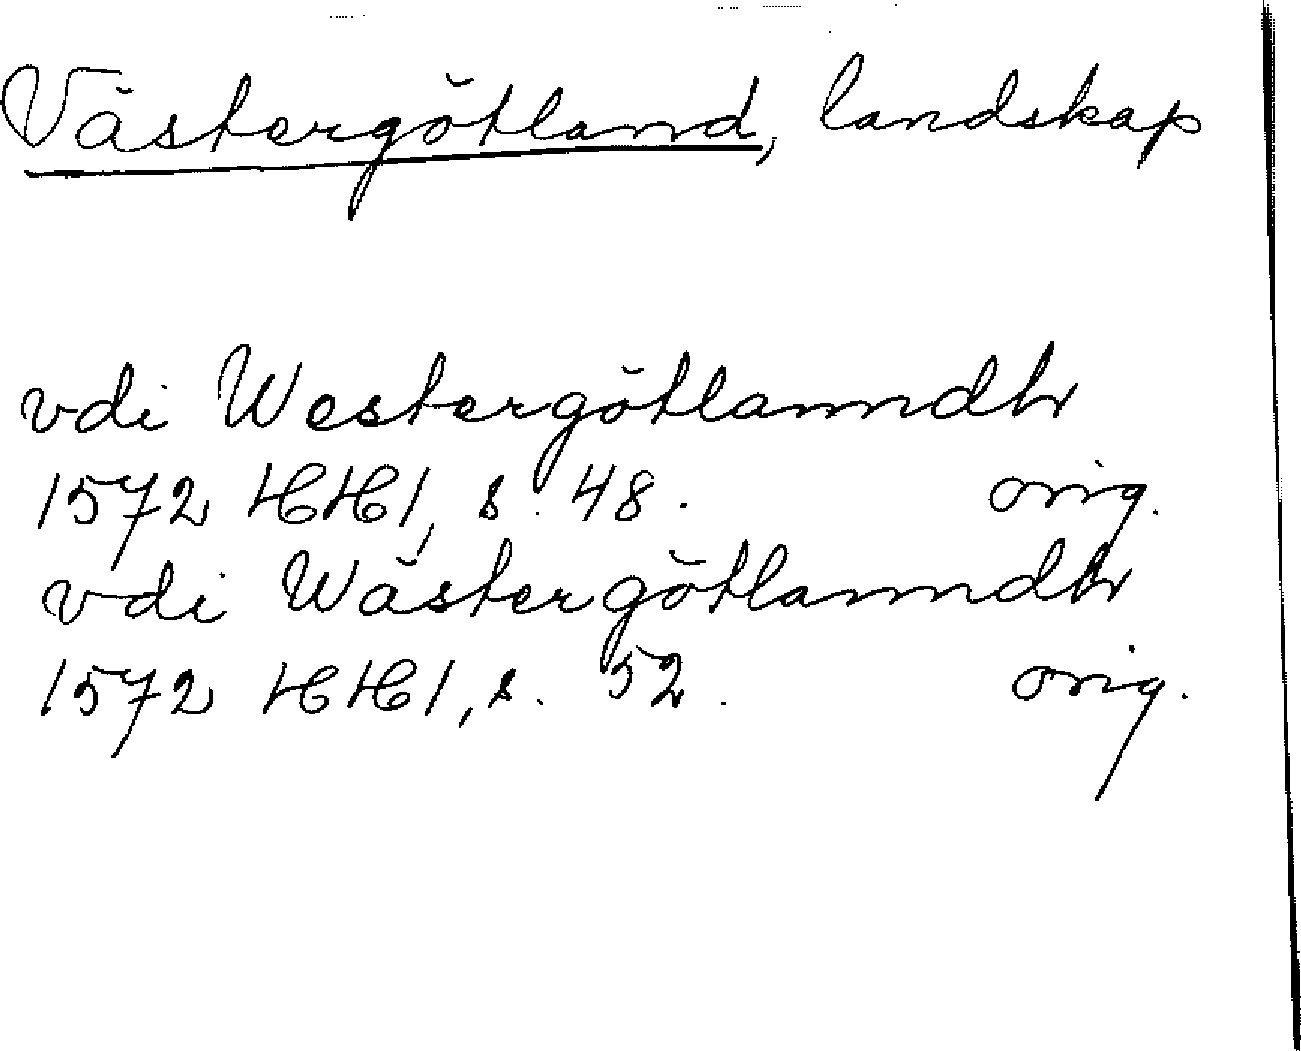 Västergötland, landskap
vdi Westergötlanndh
1572 HH1, s. 48. orig.
vdi Wästergötlanndh
1572 HH1, s. 52. orig.